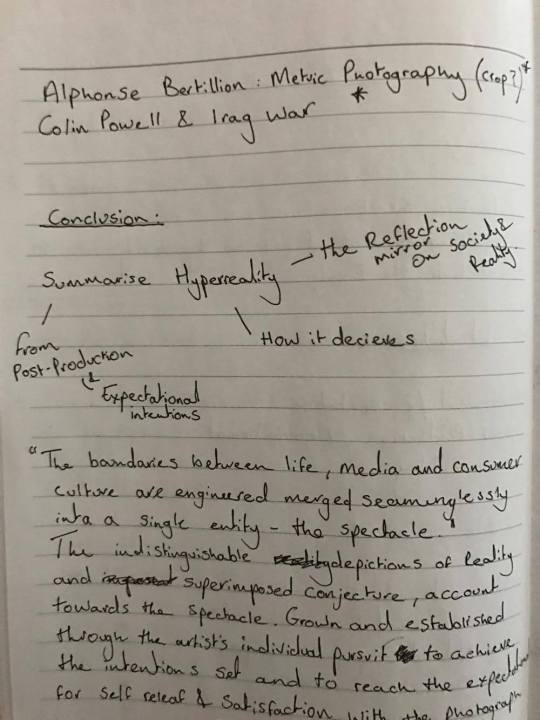 Alphonse Bertillion : Metric Photography (crop?)*
Colin Powell & Iraq War *
Conclusion:
Summarise Hyperreality
the Reflection
mirror
on Society &
Reality.
How it decieves
from
Post-Production
Expectational
intentions
"The boundaries between life, media and consumer
culture are engineered merged seaminglessly
into a single entity – the spectacle."
The indistinguishable depictions of Reality
and superimposed conjecture, account
towards the spectacle. Grown and established
through the artist's individual pursuit to achieve
the intentions set and to reach the
for self releaf & Satisfaction with the photograph